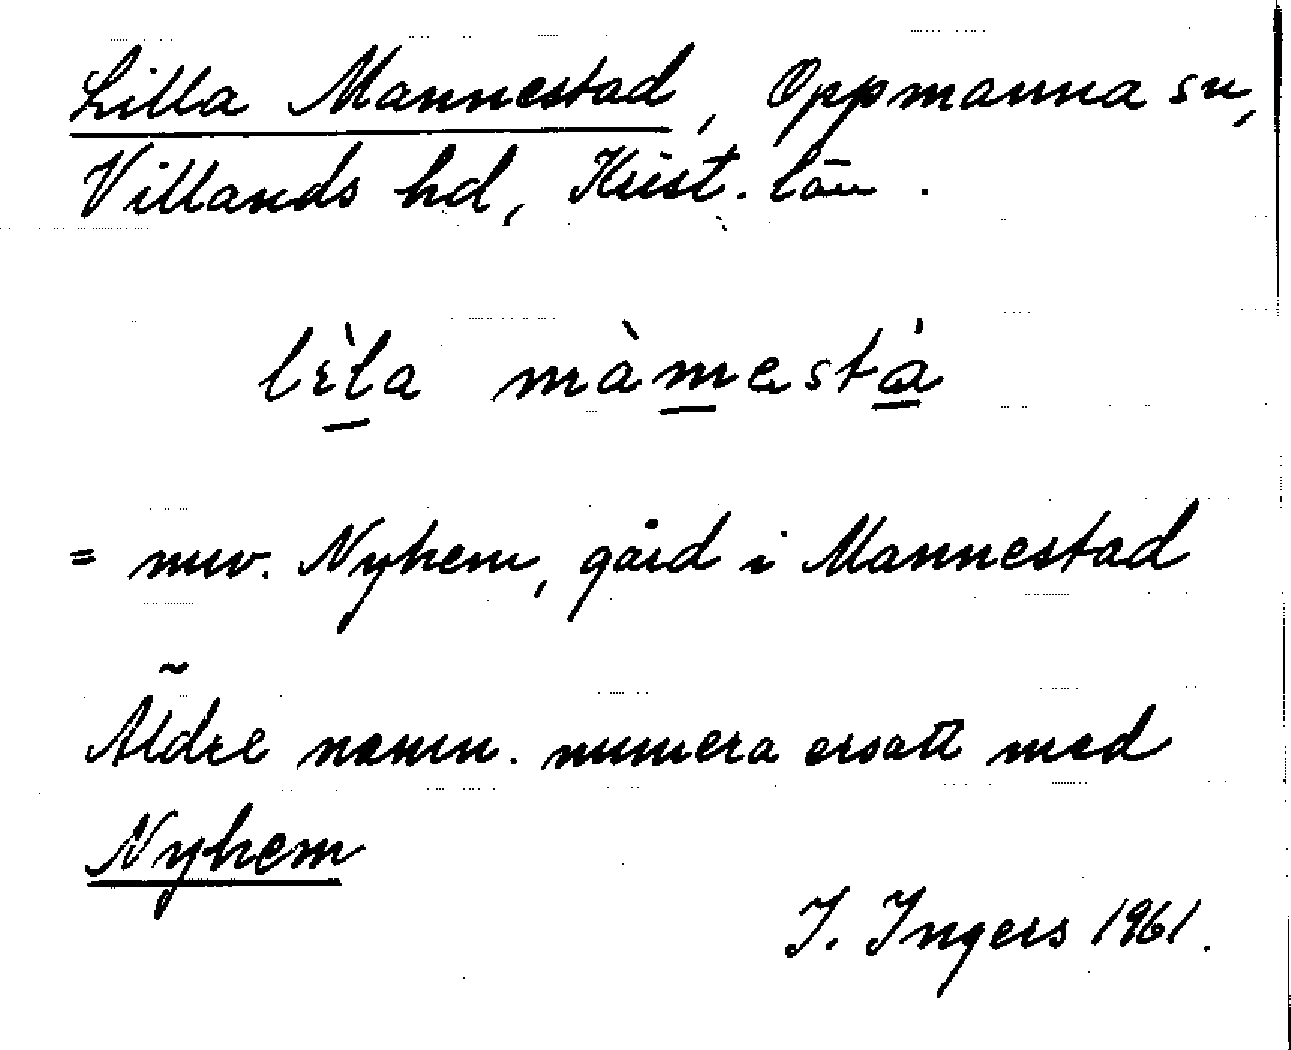 Lilla Mannestad, Oppmanna sn,
Villands hd, Krist. län.
lìla màmestà
= nuv. Nyhem, gård i Mannestad
Äldre namn. numera ersatt med
Nyhem
I. Ingers 1961.